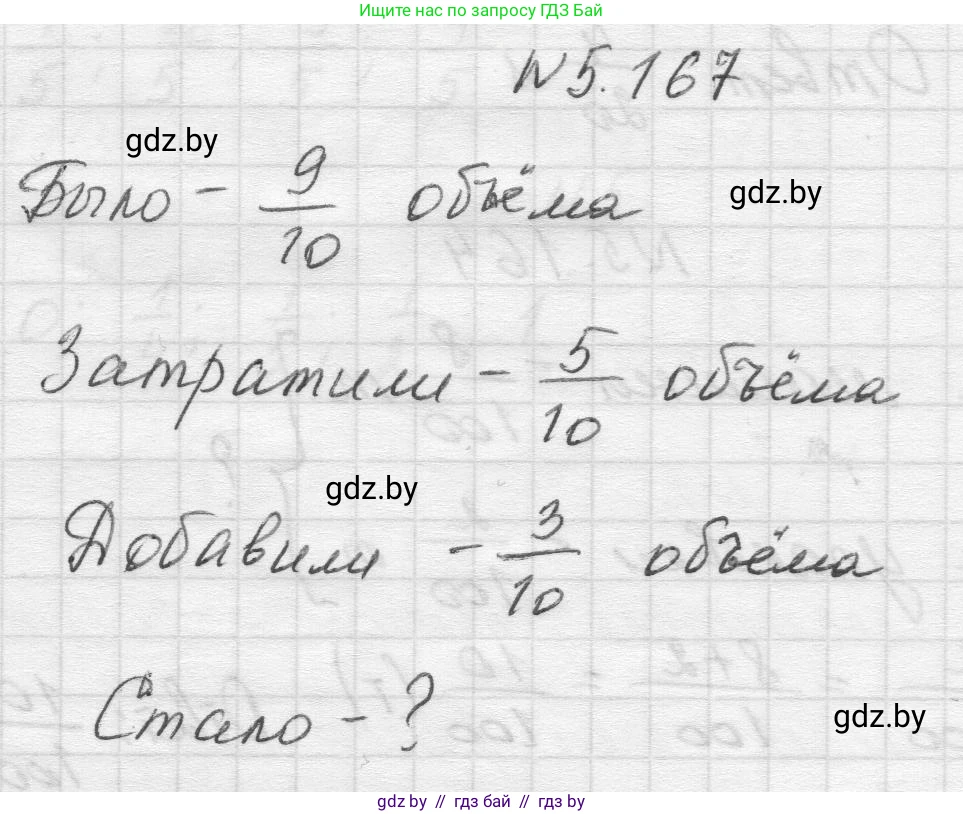 Ищите нас по запросу ГДЗ Бай
N 5.167
gdz.by
Было - 9/10 объёма
gdz.by
Затратили - 5/10 объёма
gdz.by
Добавили - 3/10 объёма
Стало - ?
gdz.by
gdz by // гдз бай // гдз by